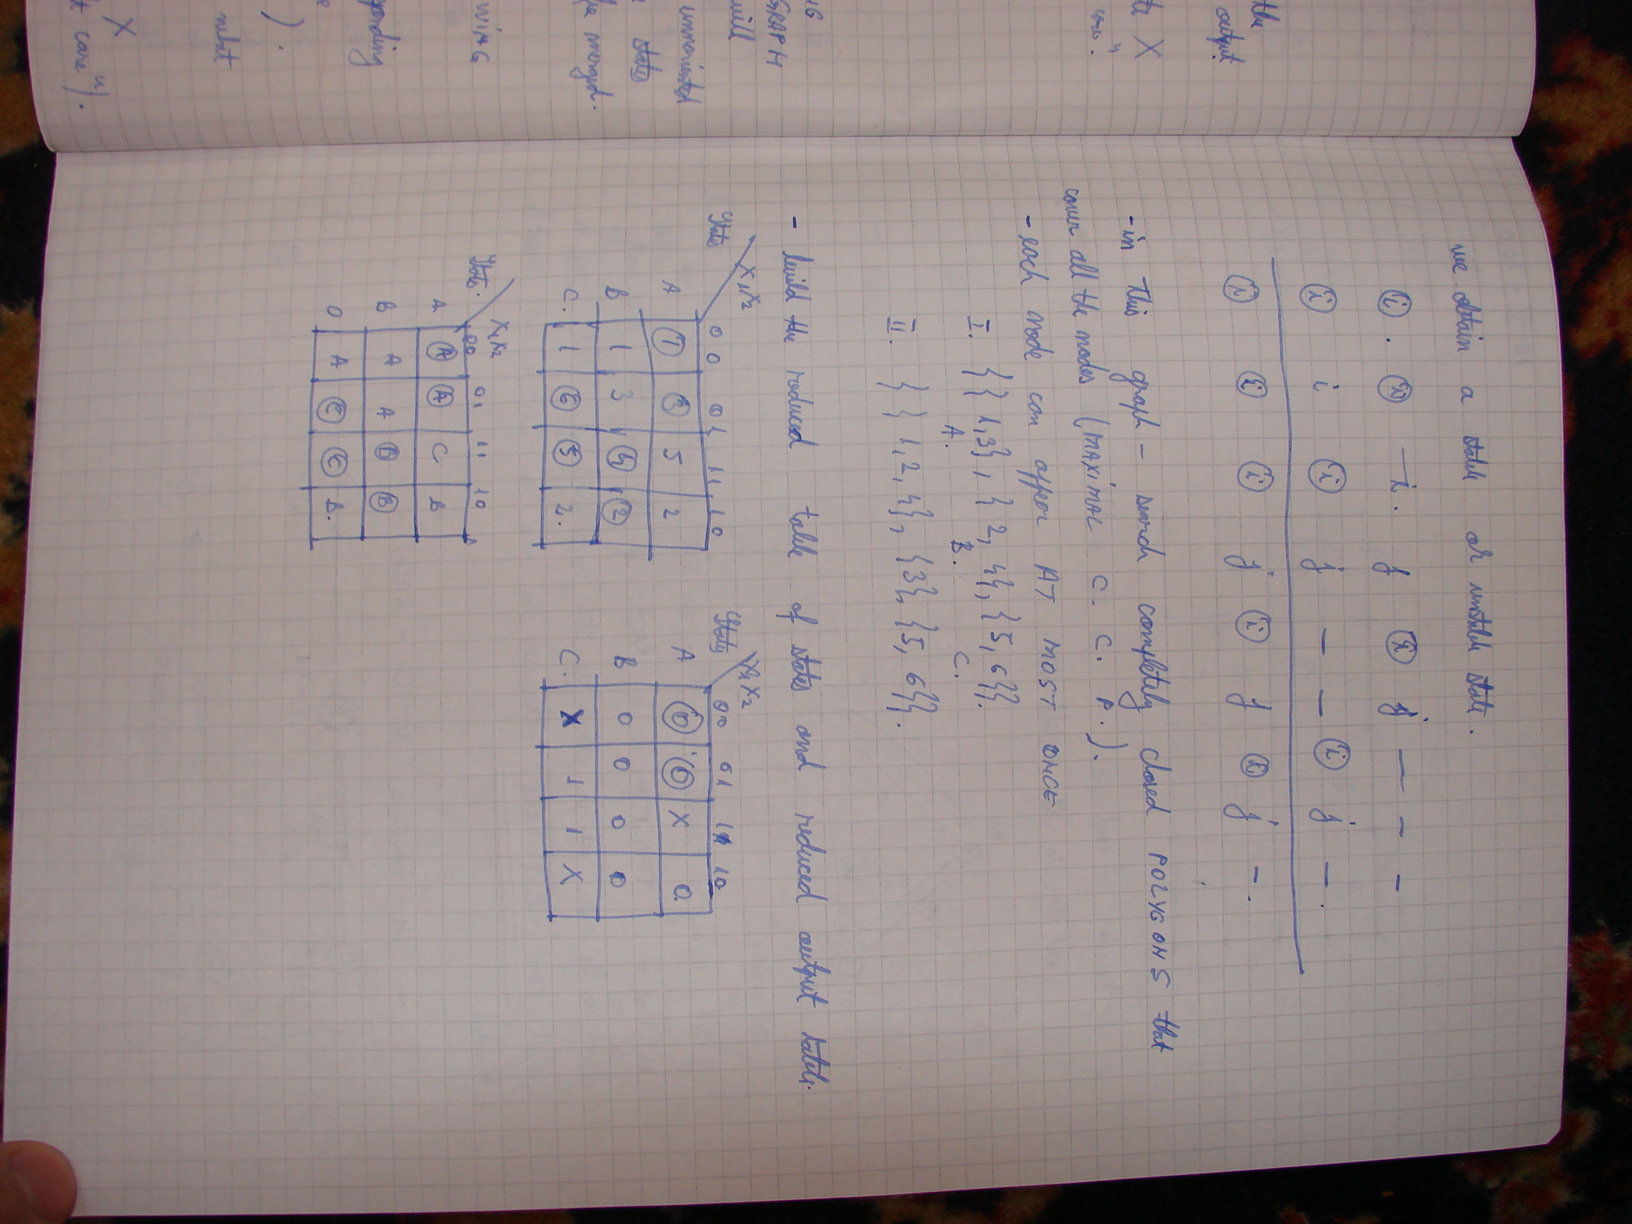 the
output
X
"
GRAPH
will
unoriented
states
merged.
X
care").
we obtain a stable or unstable state.
ⓘ . ⓘ — i . j ⓘ j — — —
ⓘ i ⓘ j — — ⓘ j — .
ⓘ ⓘ ⓘ j ⓘ j ⓘ j — .
- in this graph - search completely closed POLYGONS that
cover all the nodes (MAXIMAL C. C. P.).
- each node can appear AT MOST ONCE
I. {{1,3}, {2,4}, {5,6}}.
A. B. C.
II. {{1,2,4}, {3}, {5,6}}.
- build the reduced table of states and reduced output table.
State X₁X₂ 00 01 11 10
A ① ③ 5 2
B 1 3 ④ ②
C. 1 ⑥ ⑤ 2.
State X₁X₂ 00 01 11 10
A ⓪ ⓪ X 0
B 0 0 0 0
C. X 1 1 X
State. X₁X₂ 00 01 11 10
A Ⓐ Ⓐ C B
B A A Ⓑ Ⓑ
C A Ⓒ Ⓒ B.